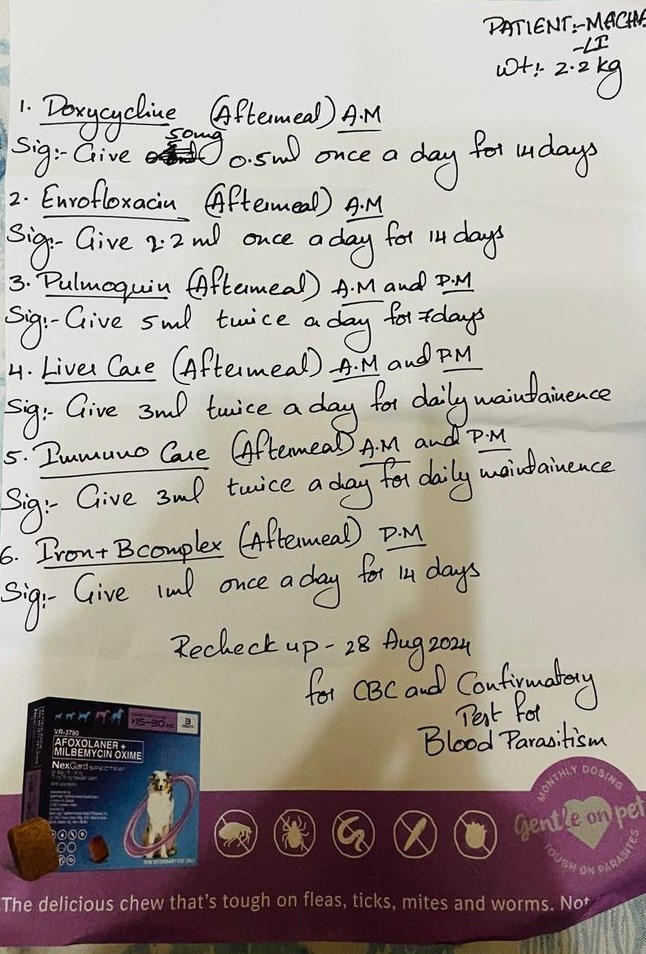 PATIENT:-MACHA
-LI
Wt:- 2.2 kg
1. Doxycycline (Aftermeal) A.M
50mg
Sig:- Give 0.5ml once a day for 14 days
2. Enrofloxacin (Aftermeal) A.M
Sig:- Give 2.2 ml once a day for 14 days
3. Pulmoquin (Aftermeal) A.M and P.M
Sig:- Give 5ml twice a day for 7days
4. Liver Care (Aftermeal) A.M and P.M
Sig:- Give 3ml twice a day for daily maintainence
5. Immuno Care (Aftermeal) A.M and P.M
Sig:- Give 3ml twice a day for daily maintainence
6. Iron+ Bcomplex (Aftermeal) P.M
Sig:- Give 1ml once a day for 14 days
Recheck up - 28 Aug 2024
for CBC and Confirmatory
Test for
Blood Parasitism
>15-30 KG
3
VR-3780
AFOXOLANER +
MILBEMYCIN OXIME
NexGard SPECTRA
FOR VETERINARY USE ONLY
MONTHLY DOSING
Gentle on pet
TOUGH ON PARASITES
The delicious chew that's tough on fleas, ticks, mites and worms. Not